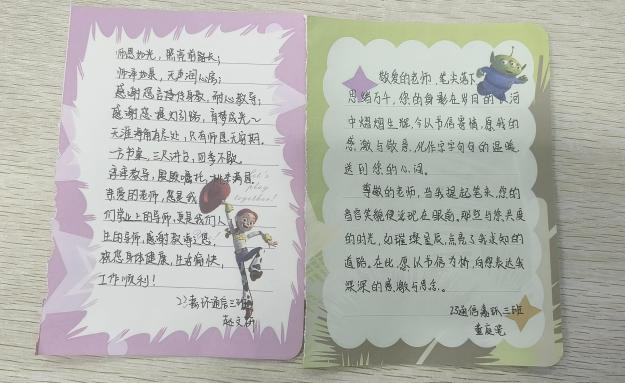 师恩如光，照亮前路长；
师泽如泉，无声润心房；
感谢您言传身教，耐心教导；
感谢您提灯引路，育梦成光～
天涯海角有尽处，只有师恩无穷期。
一方书案，三尺讲台，四季不歇。
谆谆教导，殷殷嘱托，桃李满园
亲爱的老师，您是我
们学业上的导师，更是我们人
生的导师，感谢敬语之恩，
祝您身体健康，生活愉快，
工作顺利！
Let's
play
together!
23 通信三班
赵文
敬爱的老师，笔尖落下
思绪万千，您的身影在岁月的长河
中熠熠生辉，今以书信寄情，愿我的
感激与敬意，化作字字句句的温暖，
送到您的心间。
尊敬的老师，当我提起笔来，您的
音容笑貌便浮现在眼前，那些与您共度
的时光，如璀璨星辰，点亮了我求知的
道路。在此，愿以书信为桥，向您表达我
深深的感激与思念。
23通信 三班
董庭